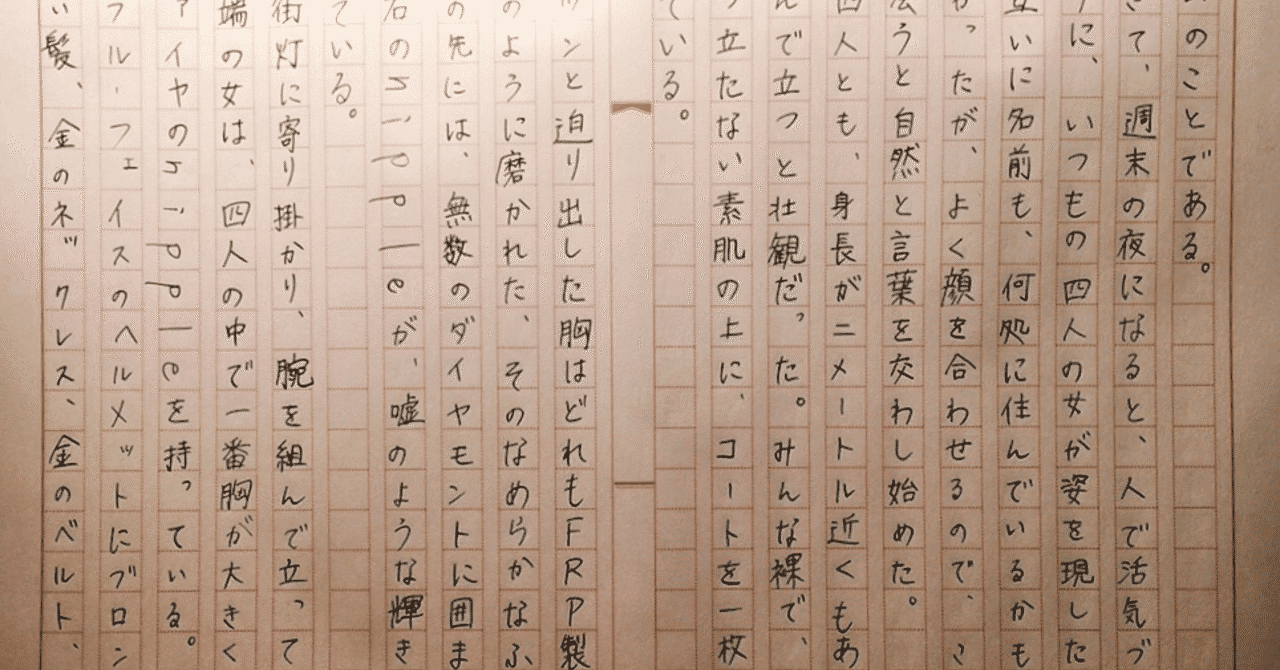 のことである。
きて、週末の夜になると、人で活気づ
うに、いつもの四人の女が姿を現した
互いに名前も、何処に住んでいるかも
かったが、よく顔を合わせるので、こ
うと自然と言葉を交わし始めた。
四人とも、身長が二メートル近くもあ
んで立つと壮観だった。みんな裸で、
つ立たない素肌の上に、コートを一枚
ている。
ンと迫り出した胸はどれもFRP製
のように磨かれた、そのなめらかなふ
の先には、無数のダイヤモンドに囲ま
石のnippleが、嘘のような輝き
ている。
街灯に寄り掛かり、腕を組んで立って
端の女は、四人の中で一番胸が大きく
ァイヤのnippleを持っている。
フル・フェイスのヘルメットにブロン
い髪、金のネックレス、金のベルト、